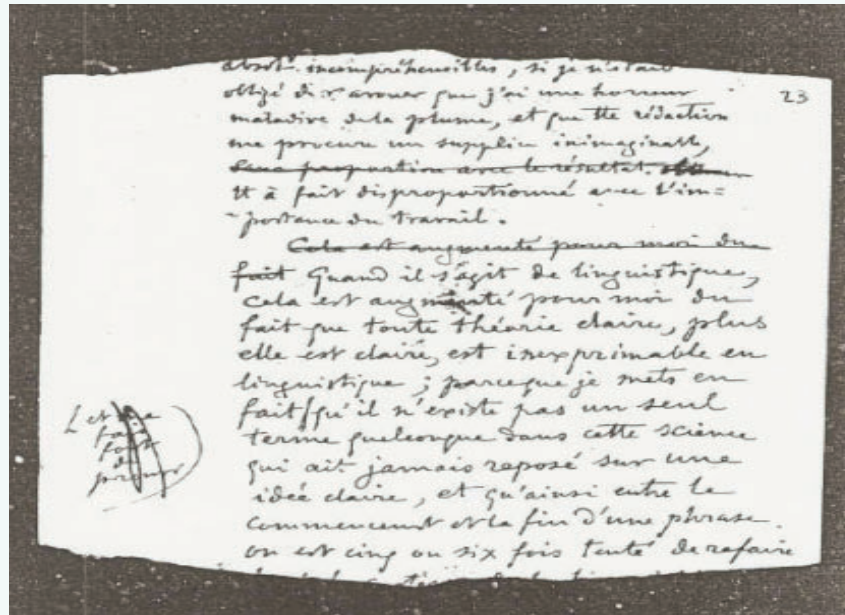 absolt incompréhensibles, si je n'étais
23
obligé de t'avouer que j'ai une horreur
maladive de la plume, et que tte rédaction
me procure un supplice inimaginable,
sans proportion avec le résultat.
tt à fait disproportionné avec l'im=
portance du travail.
Cela est augmenté pour moi du
fait Quand il s'agit de linguistique,
cela est augmenté pour moi du
fait que toute théorie claire, plus
elle est claire, est inexprimable en
linguistique ; parceque je mets en
fait qu'il n'existe pas un seul
terme quelconque dans cette science
qui ait jamais reposé sur une
idée claire, et qu'ainsi entre le
commencemt et la fin d'une phrase
on est cinq ou six fois tenté de refaire